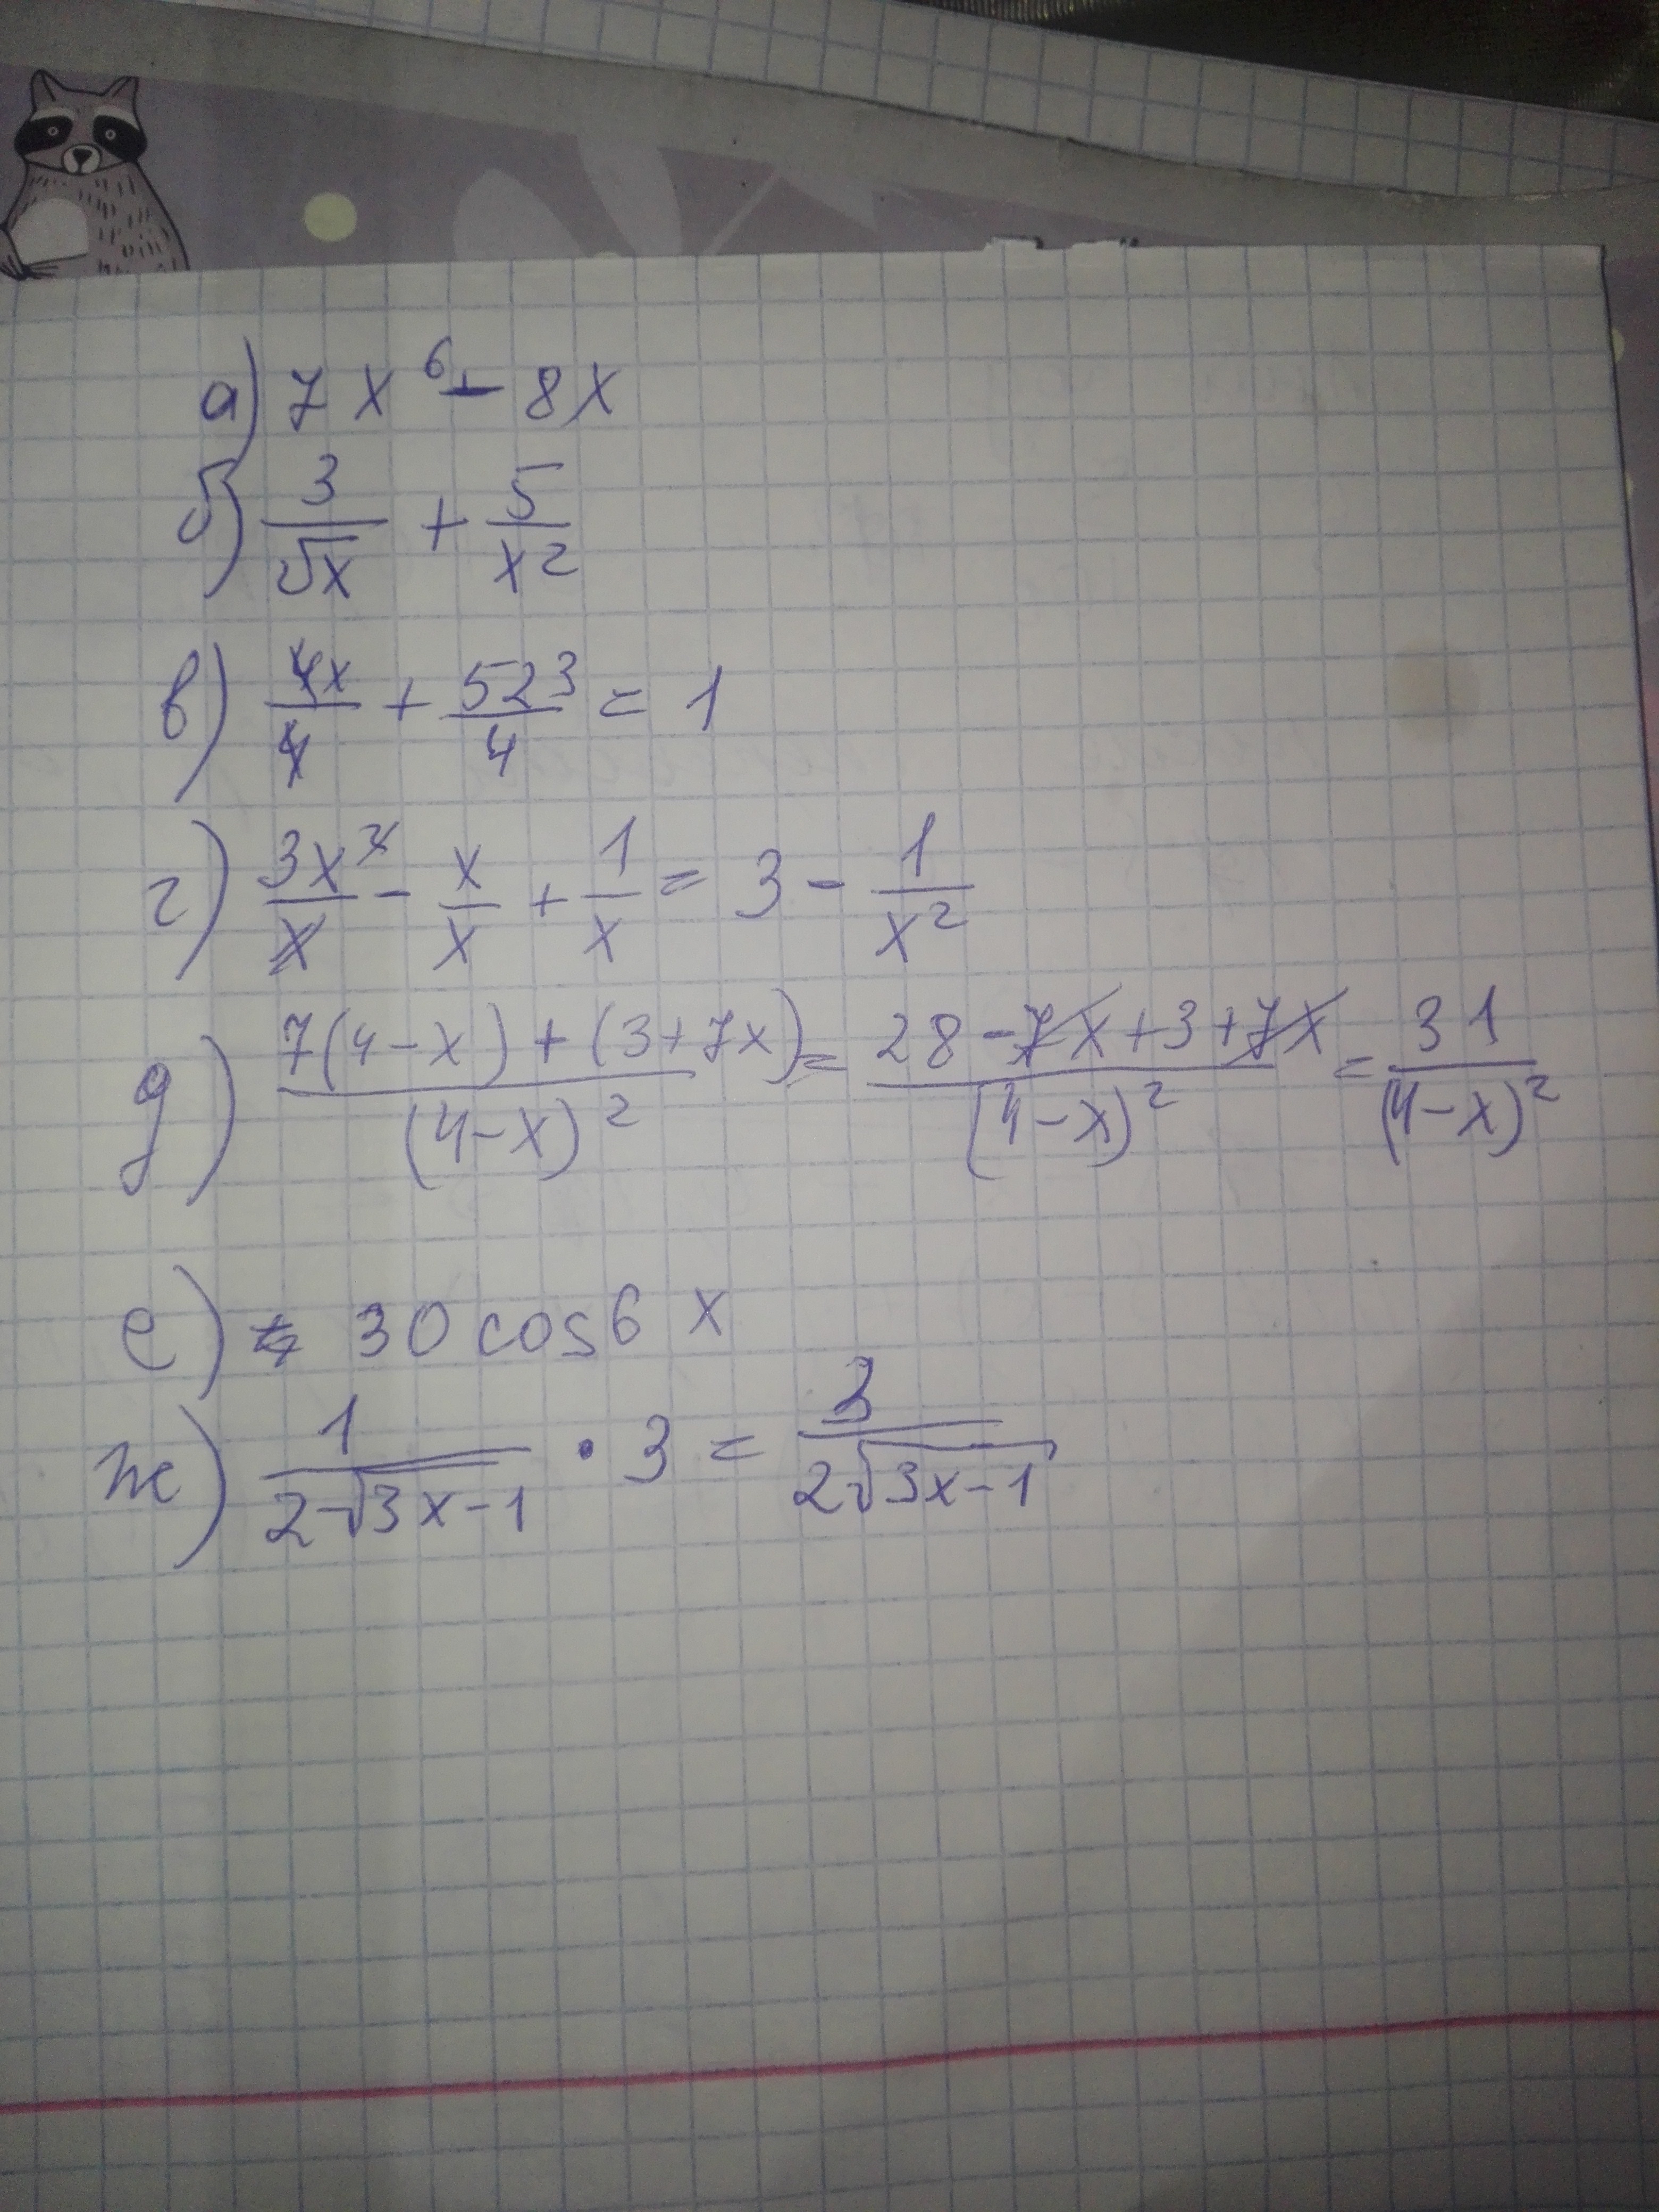 а) 7x⁶ - 8x
б) 3/√x + 5/x²
в) 4x/4 + 523/4 = 1
г) 3x²/x - x/x + 1/x = 3 - 1/x²
д) 7(4-x)+(3+7x)/(4-x)² = 28-7x+3+7x/(4-x)² = 31/(4-x)²
е) 30cos6x
ж) 1/2√3x-1 · 3 = 3/2√3x-1